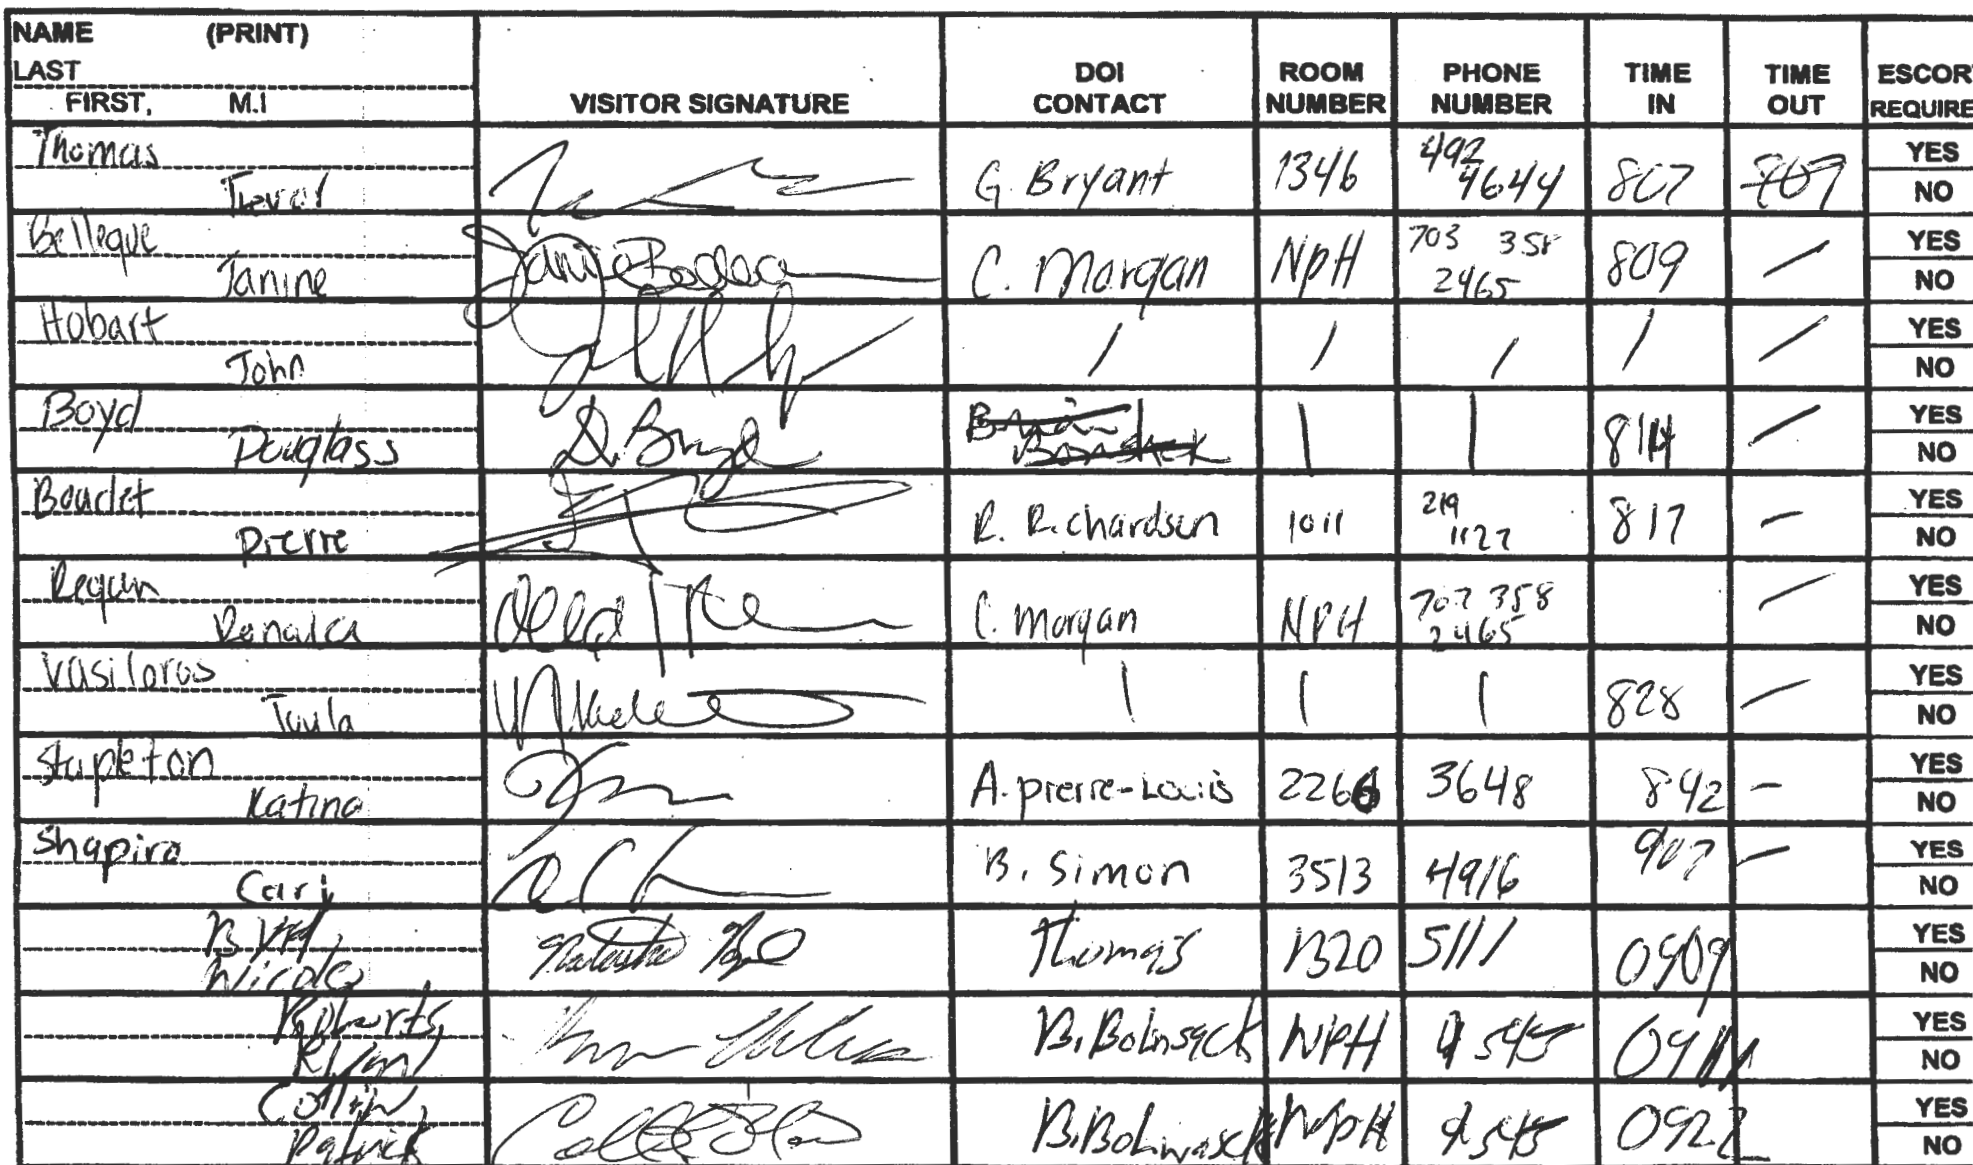 NAME (PRINT)
LAST
FIRST, M.I
VISITOR SIGNATURE
DOI CONTACT
ROOM NUMBER
PHONE NUMBER
TIME IN
TIME OUT
ESCORT REQUIRE
Thomas
Trevor
G. Bryant 1346 492 4644 807
YES
NO
Belleque
Janine
C. Morgan NPH 703 358 2465 809 /
YES
NO
Hobart
John
/ / / / /
YES
NO
Boyd
Douglass
D. Boyd
| | 814 /
YES
NO
Boudet
Pierre
R. Richardson 1011 219 1127 817 -
YES
NO
Regan
Ronald
C. Morgan NPH 703 358 2465 /
YES
NO
Vasiloros
Toula
| | | 828 -
YES
NO
Stapleton
Katina
A. Pierre-Louis 2266 3648 842 -
YES
NO
Shapiro
Cari
B. Simon 3513 4916 907 -
YES
NO
Byrd,
Nicole
Thomas 1320 5111 0909
YES
NO
Roberts,
NPH 4545
YES
NO
Collin,
Patrick
NPH 4545 0922
YES
NO